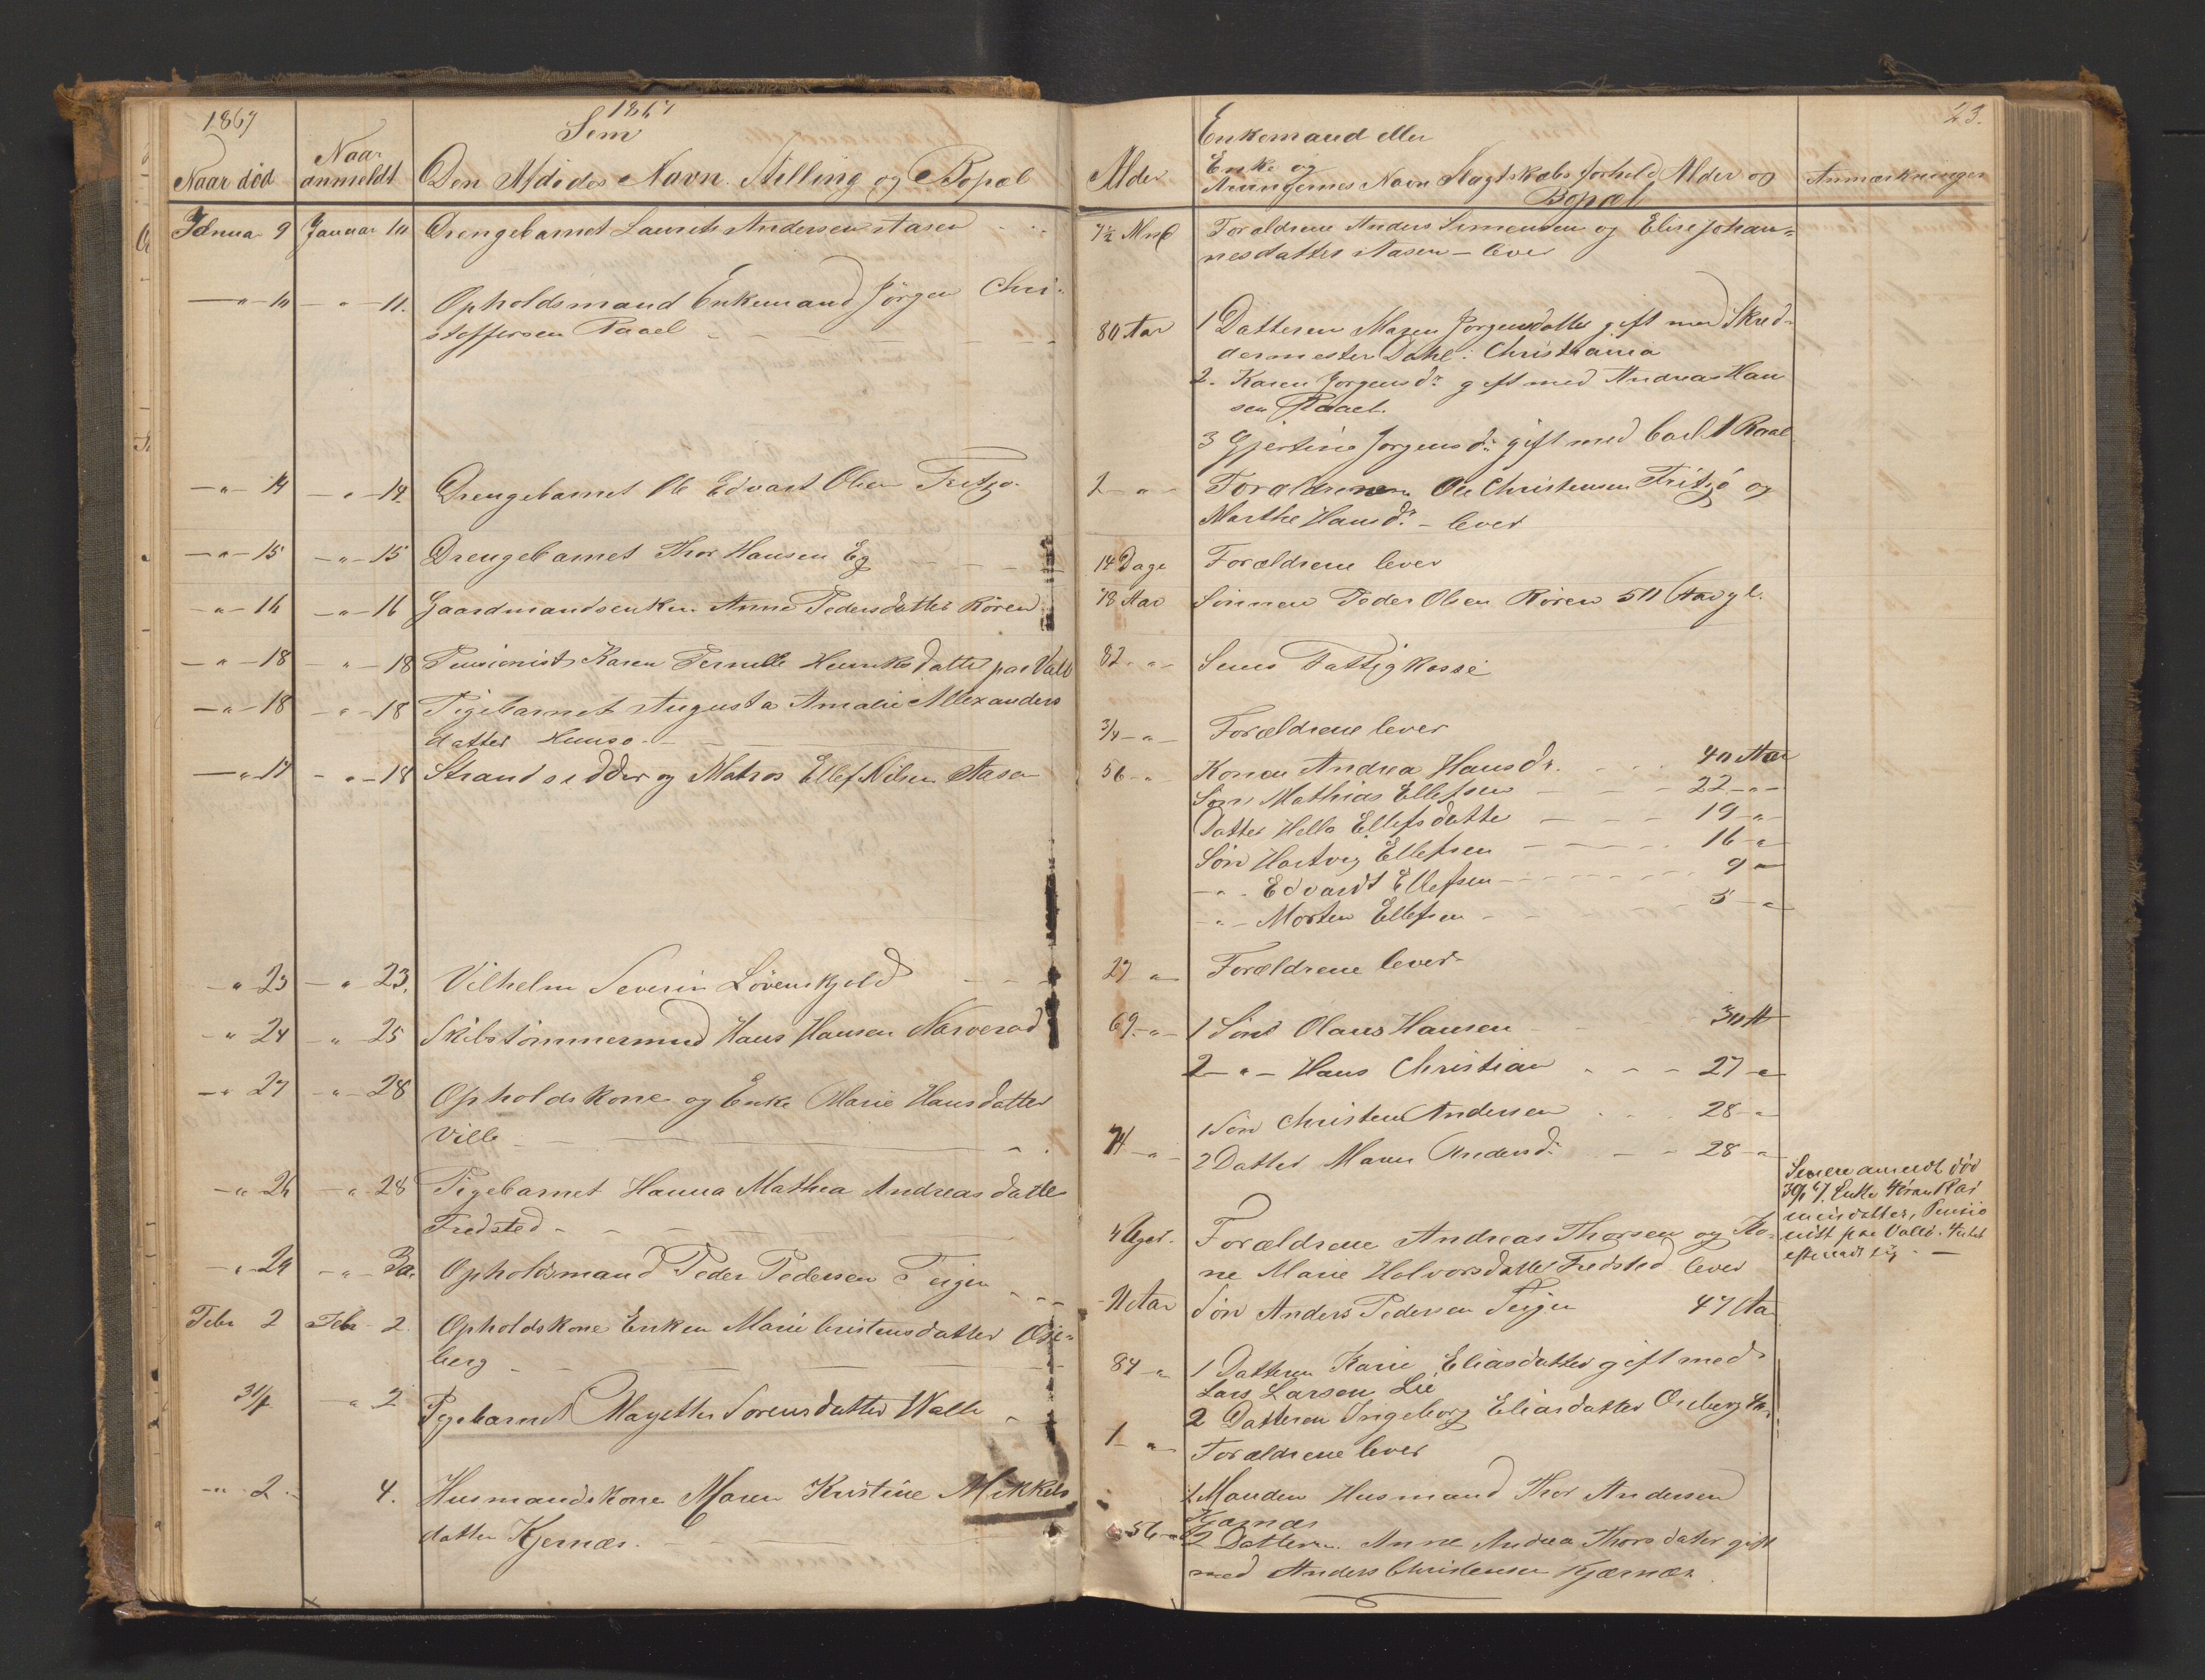 1867
Sem
1867
Naar død
Naar anmeldt
Den Afdødes Navn. Stilling og Bopæl
Januar 9
Januar 10
Drengebarnet Laurits Andersen Aasen
— " — 10
— " — 11.
Opholdsmand Enkemand Jörgen Chri-
stoffersen Raael
— " — 14
— " — 14.
Drengebarnet Ole Edvart Olsen Fritzö
— " — 15
— " — 15
Drengebarnet Thor Hansen Eg
— " — 16
— " — 16
Gaardmandsenken Anne Pedersdatter Rören
— " — 18
— " — 18
Pensionist Karen Pernille Henriksdatter paa Vall
— " — 18
— " — 18
Pigebarnet Augusta Amalie Allexanders
datter
— " — 17
— " — 18
Strandsidder og Matros Ellef Nilsen Aasen
— " 23
— " — 23.
Vilhelm Severin Lövenskjold
— " 24
— " — 25
Skibstömmermand Hans Hansen Narverød
— " 27
— " — 28
Opholdskone og Enke Marie Hansdatter
Ville
— " 26
— " 28
Pigebarnet Hanna Mathea Andreasdatter
Fredsted
— " — 29
— " — 30.
Opholdsmand Peder Pedersen Teigen
Febr 2
Febr 2
Opholdskone Enken Marie Cristensdatter Ose-
berg
31/1
— " 2
Pigebarnet Mayette Sorensdatter Walle
— " 2
4.
Husmandskone Maren Kristine Mikkels
datter Kjernæs.
23.
Alder
Enkemand eller
Enke og
Arvingernes Navn Slagtskabs forhold Alder og
Bopæl
Anmærkninger
7½ Mnd
Forældrene Anders Simensen og Elise Johan-
nesdatter Aasen — lever
80 Aar
1 Datteren Maren Jörgensdatter gift med Skred-
dermester Dahl i Christiania
2. Karen Jörgensdr gift med Andreas Han
sen Raael.
3 Gjertine Jorgensdr gift med Carl Raael
2 — " —
Forældrenen Ole Christensen Fritzö og
Marthe Hansdr. — lever
14 Dage
Forældrene lever
78 Aar
Sönnen Peder Olsen Rören 50 Aar gl.
82 — " —
Sems Fattigkasse
3/4 — " —
Forældrene lever
56 — "
Konen Andrea Hansdr. 40 Aar
Sön Mathias Ellefsen — 22 — " —
Datter Helle Ellefsdatter — 19 — " —
Sön Hartvig Ellefsen — 16 — "
— " — Edvardt Ellefsen — 9 —
— " — Morten Ellefsen — 5 — "
27 "
Forældrene lever
69. — " —
1 Sön Olaus Hansen 30 A
2 — " — Hans Christian 27 — "
74 — " —
1 Sön Christen Andersen 28 — "
2 Datter Maren Andersdr 28 — "
4 Uger.
Forældrene Andreas Thorsen og Ko-
ne Marie Halvorsdatter Fredsted lever
Aar
Sön Anders Pedersen Teigen 47 Aar
84 — "
1 Datteren Karie Eliasdatter gift med
Lars Larsen Lie
2 Datteren Ingeborg Eliasdatter Oseberg
1 — " —
Forældrene lever
56 — "
1 Manden Husmand Thor Andersen
Kjærnæs
2 Datteren Anne Andrea Thorsdater gift
med Anders Christensen Kjærnæs.
Senere anmeldt död
Enke
datter, Pensio
nist paa Vallö. Intet
efterladt sig. —